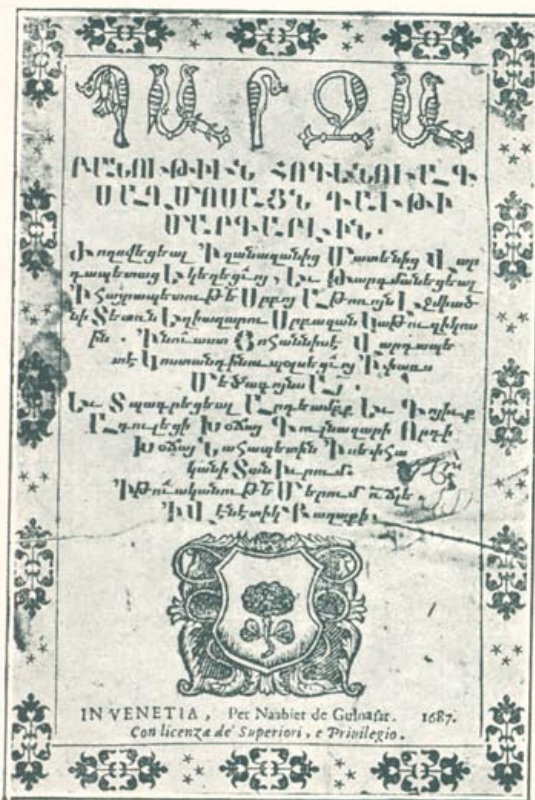 ՊԱՐԶԱ
ԲԱՆՈՒԹԻՒՆ ՀՈԳԵՆՈՒԱԳ
ՍԱՂՄՈՍԱՑՆ ԴԱՒԹԻ
ՄԱՐԳԱՐԷԻՆ.
Ժողովեցեալ Ի զանազանից Մատենից Վար
դապետաց Եկեղեցւոյ, Եւ Թարգմանեցեալ
Ի Հայրապետութե Սրբոյ Աթոռոյն Էջմիած
նի Տեառն Եղիազարու Սրբազան Կաթուղիկոս
ին. Ի նուաստ Յոհաննիսէ Վարդապե
տէ Կոստանդինուպօլսեցւոյ Ի փառս
Մեծագոյնս Այ.
Եւ Տպագրեցեալ Արդեամբք Եւ Գոյիւք
Ընդուլեցի Խօճայ Գուլնազարի Որդի
Խօճայ Նահապետին
կանի Տան Իւրում.
Ի Վէնէտիկ Քաղաքի.
IN VENETIA, Per Naabiet de Gulnasar. 1687.
Con licenza de' Superiori, e Priuilegio.